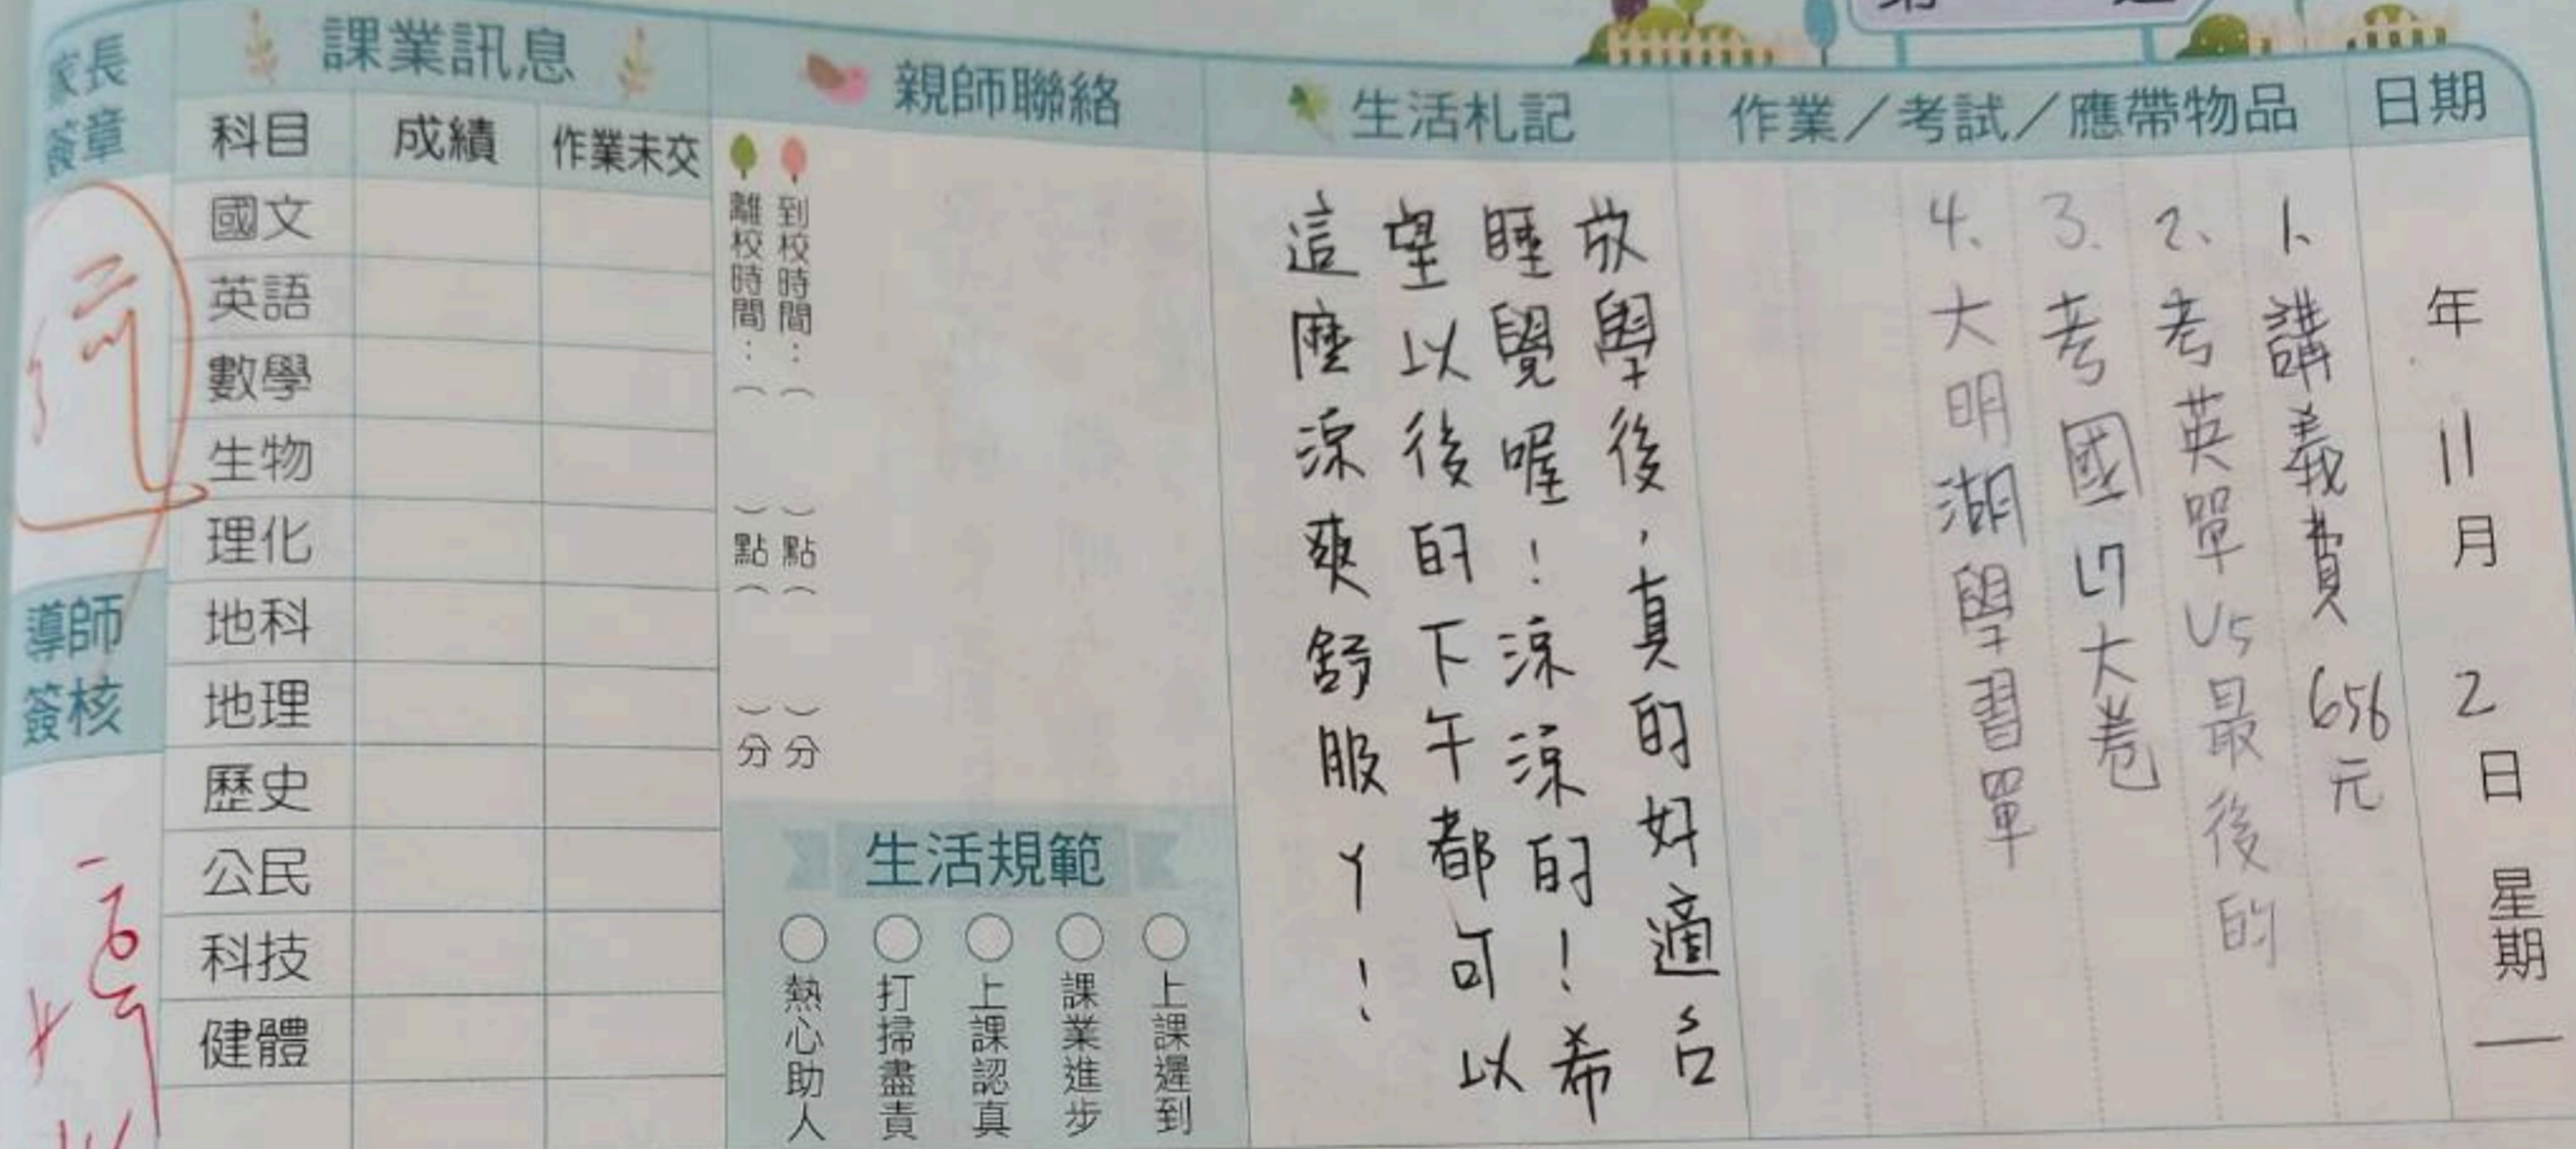 日期
年 11 月 2 日 星期 一
作業／考試／應帶物品
1、講義費 656元
2、考英單 U5最後的
3、考國 L7大卷
4、大明湖學習單
生活札記
放學後，真的好適合
睡覺喔！涼涼的！希
望以後的下午都可以
這麼涼爽舒服ㄚ！
親師聯絡
到校時間：（ ）點（ ）分
離校時間：（ ）點（ ）分
生活規範
上課遲到
課業進步
上課認真
打掃盡責
熱心助人
課業訊息
科目 成績 作業未交
國文
英語
數學
生物
理化
地科
地理
歷史
公民
科技
健體
家長
簽章
導師
簽核